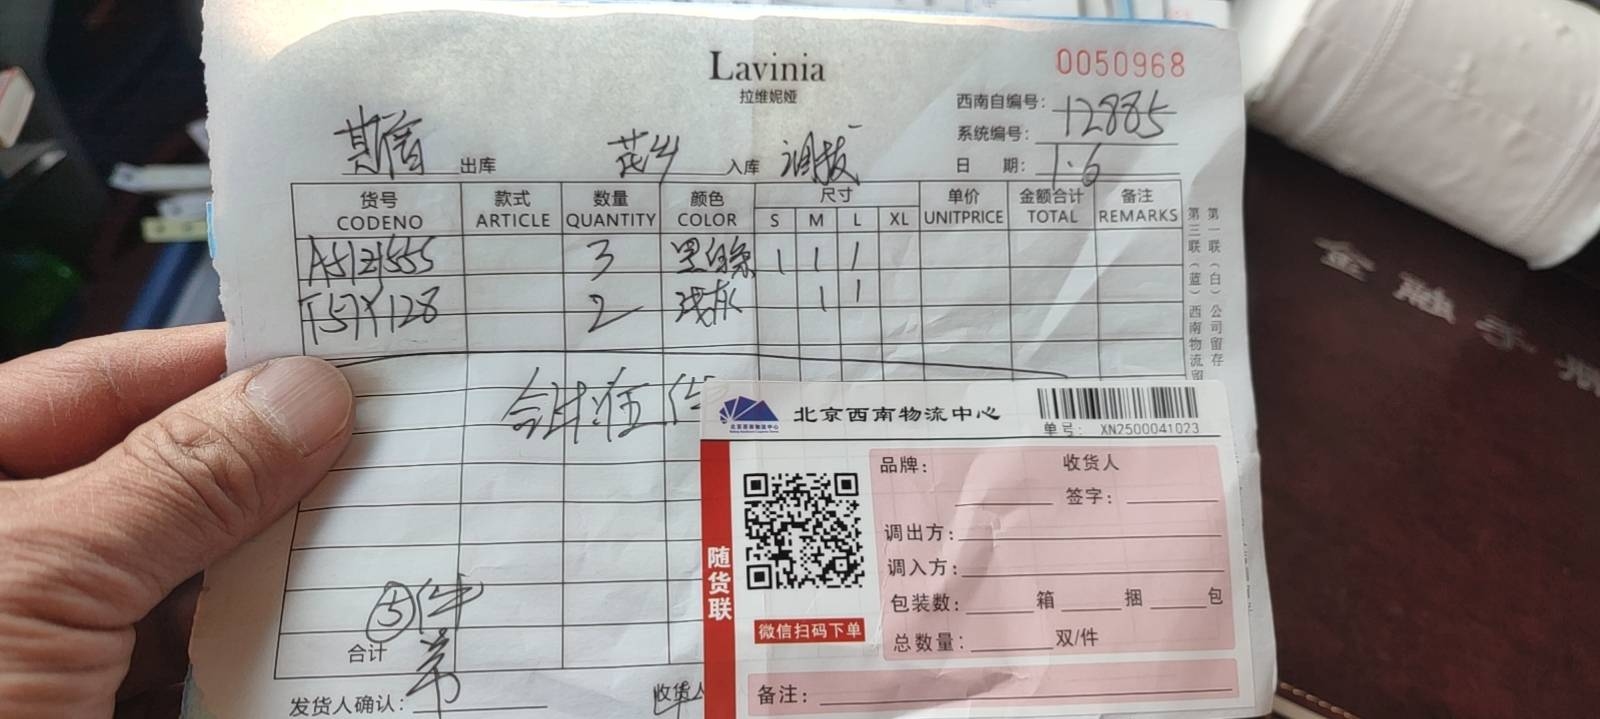 Lavinia
拉维妮娅
0050968
西南自编号: 12885
系统编号:
日 期: 1.6
出库 花乡 入库 调拨
货号 款式 数量 颜色 尺寸 单价 金额合计 备注
CODENO ARTICLE QUANTITY COLOR S M L XL UNITPRICE TOTAL REMARKS
3 1 1 1
128 2 浅灰 1 1
合计伍件
⑤件
合计
发货人确认:
收货人
第一联(白)公司留存
第三联(蓝)西南物流留
北京西南物流中心
北京西南物流中心
单号: XN2500041023
随货联
微信扫码下单
品牌: 收货人
签字:
调出方:
调入方:
包装数: 箱 捆 包
总数量: 双/件
备注:
金融手